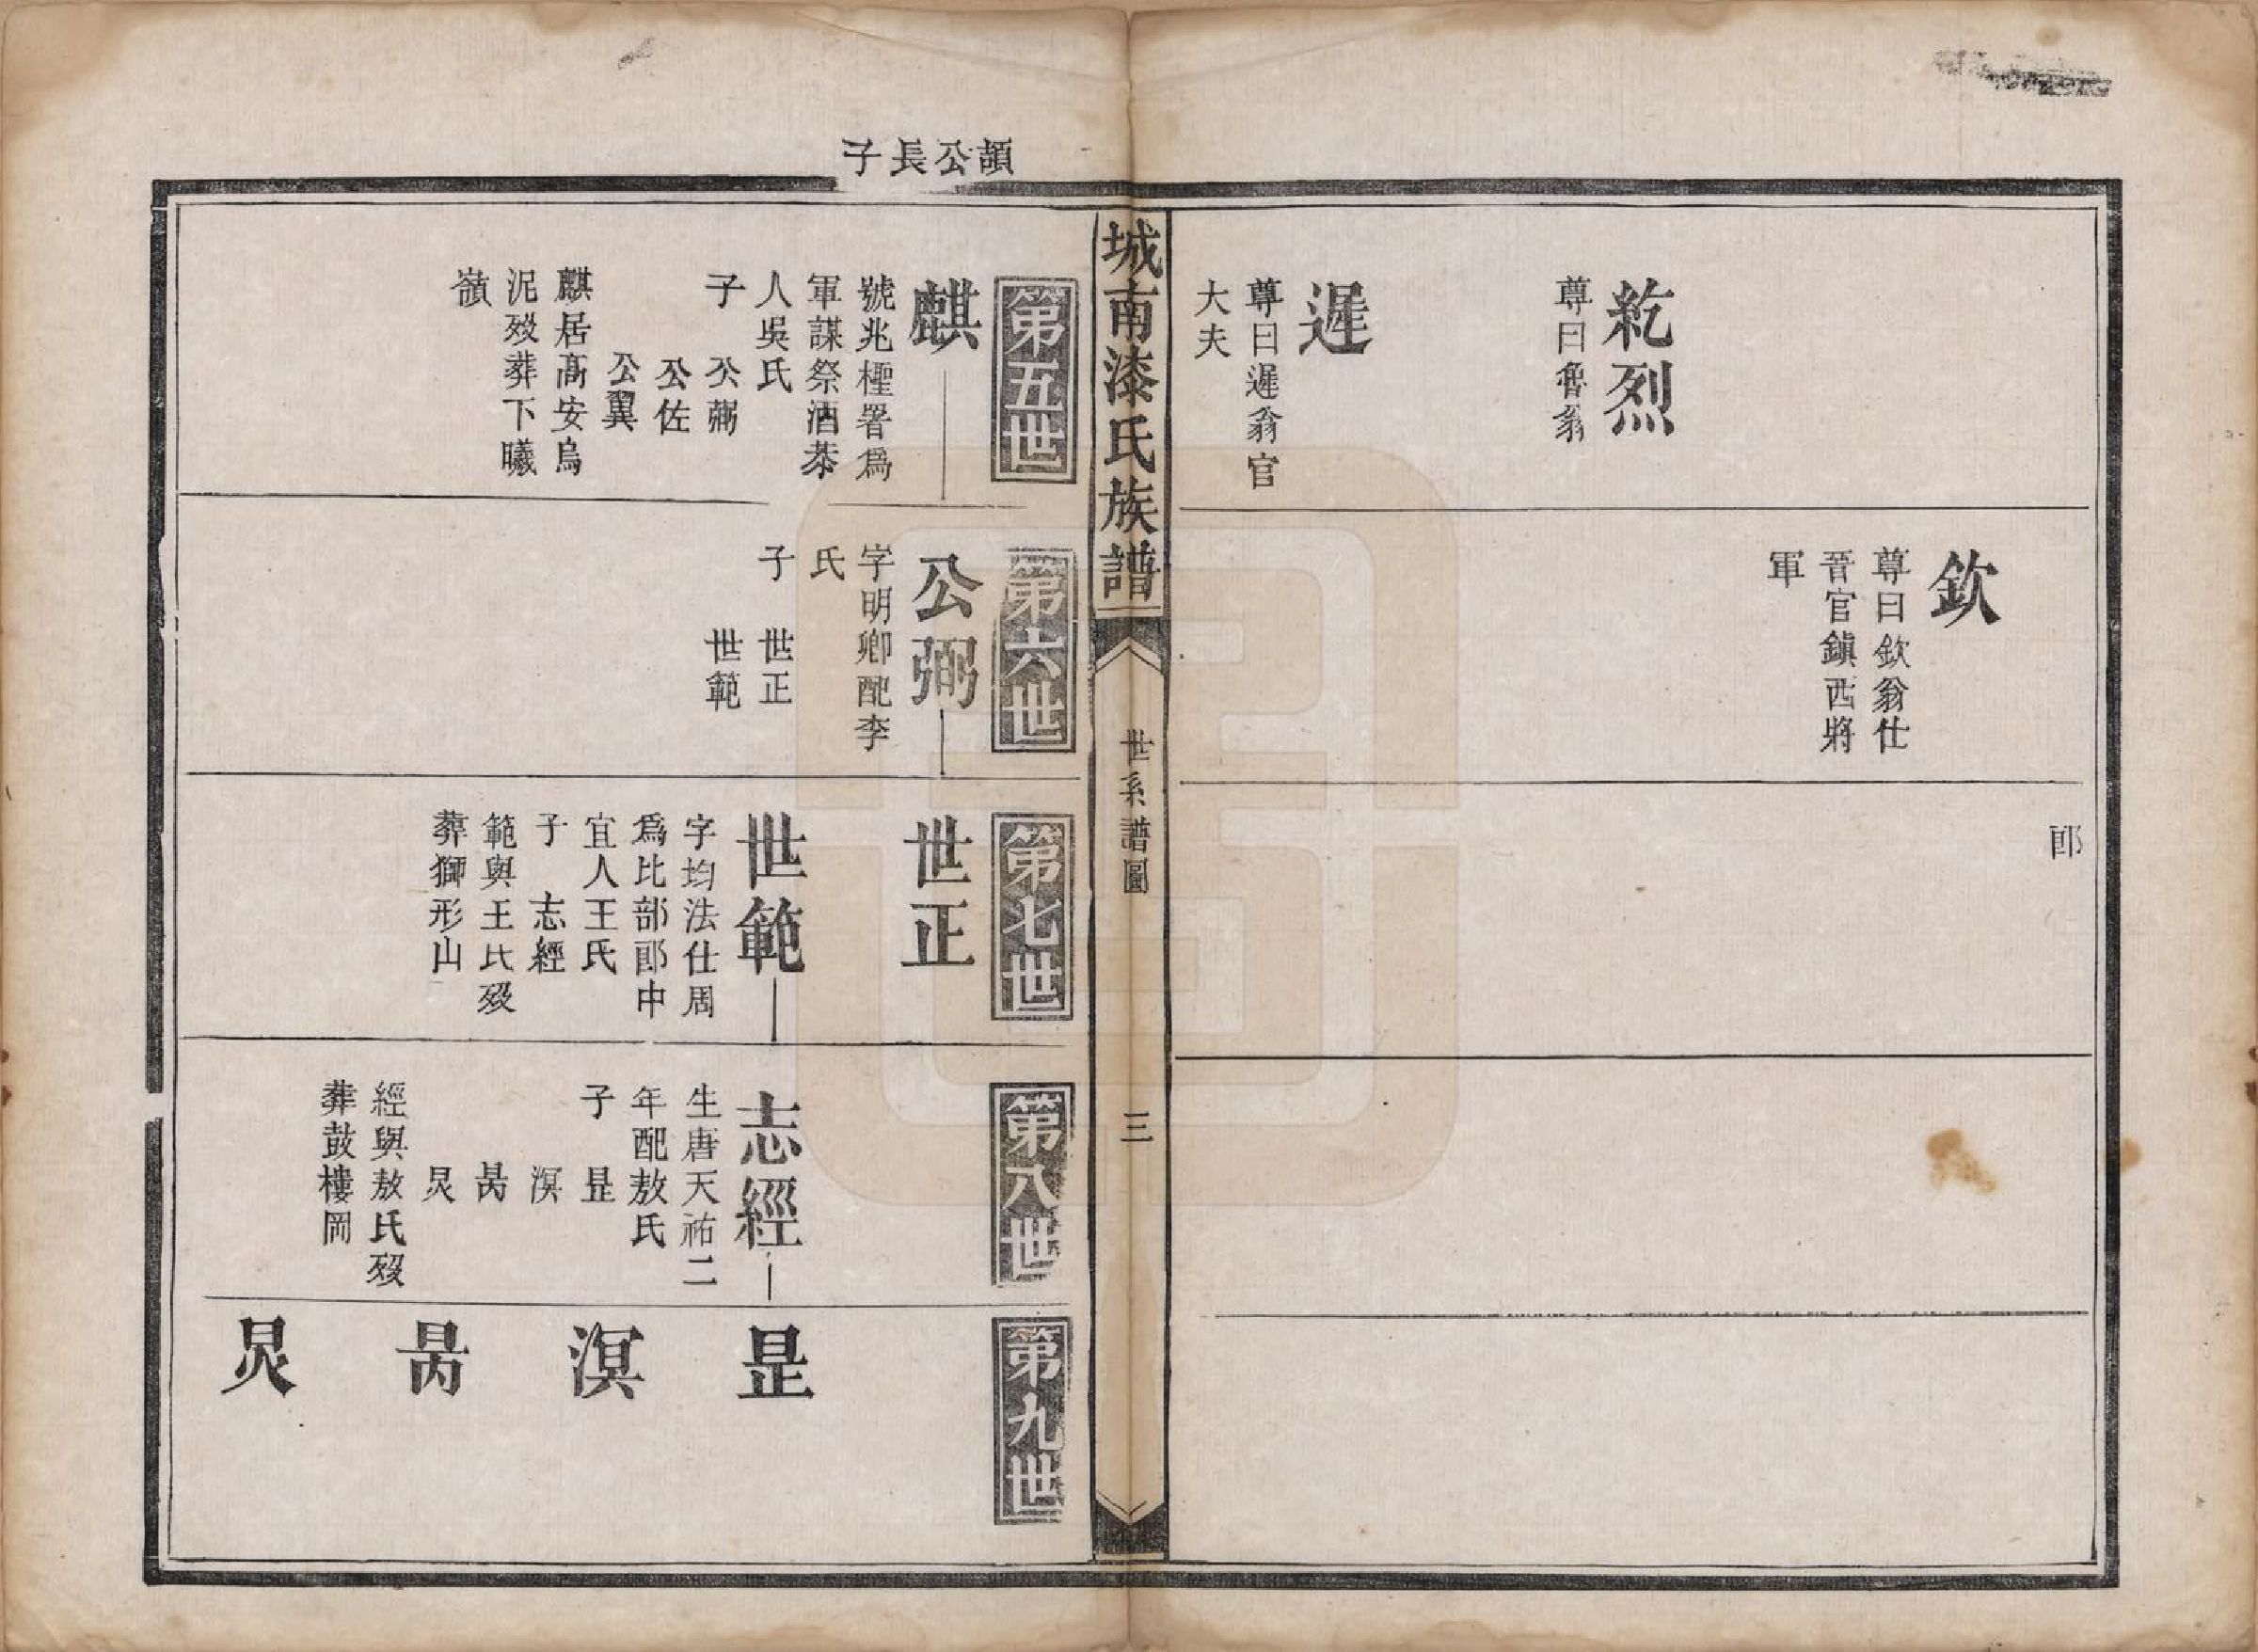 紇烈
尊曰魯翁
遲
尊曰遲翁官
大夫
欽
尊曰欽翁仕
晉官鎮西將
軍
郎
城南漆氏族譜
世系譜圖
三
頴公長子
第五世
麒
號兆檉署爲
軍謀祭酒恭
人吳氏
子 公弼
公佐
公翼
麒居高安烏
泥歿葬下曦
嶺
第六世
公弼
字明卿配李
氏
子 世正
世範
第七世
世正
世範
字均法仕周
爲比部郎中
宜人王氏
子 志經
範與王氏歿
葬獅形山
第八世
志經
生唐天祐二
年配敖氏
子 昰
溟
昺
炅
經與敖氏歿
葬鼓樓岡
第九世
昰
溟
昺
炅